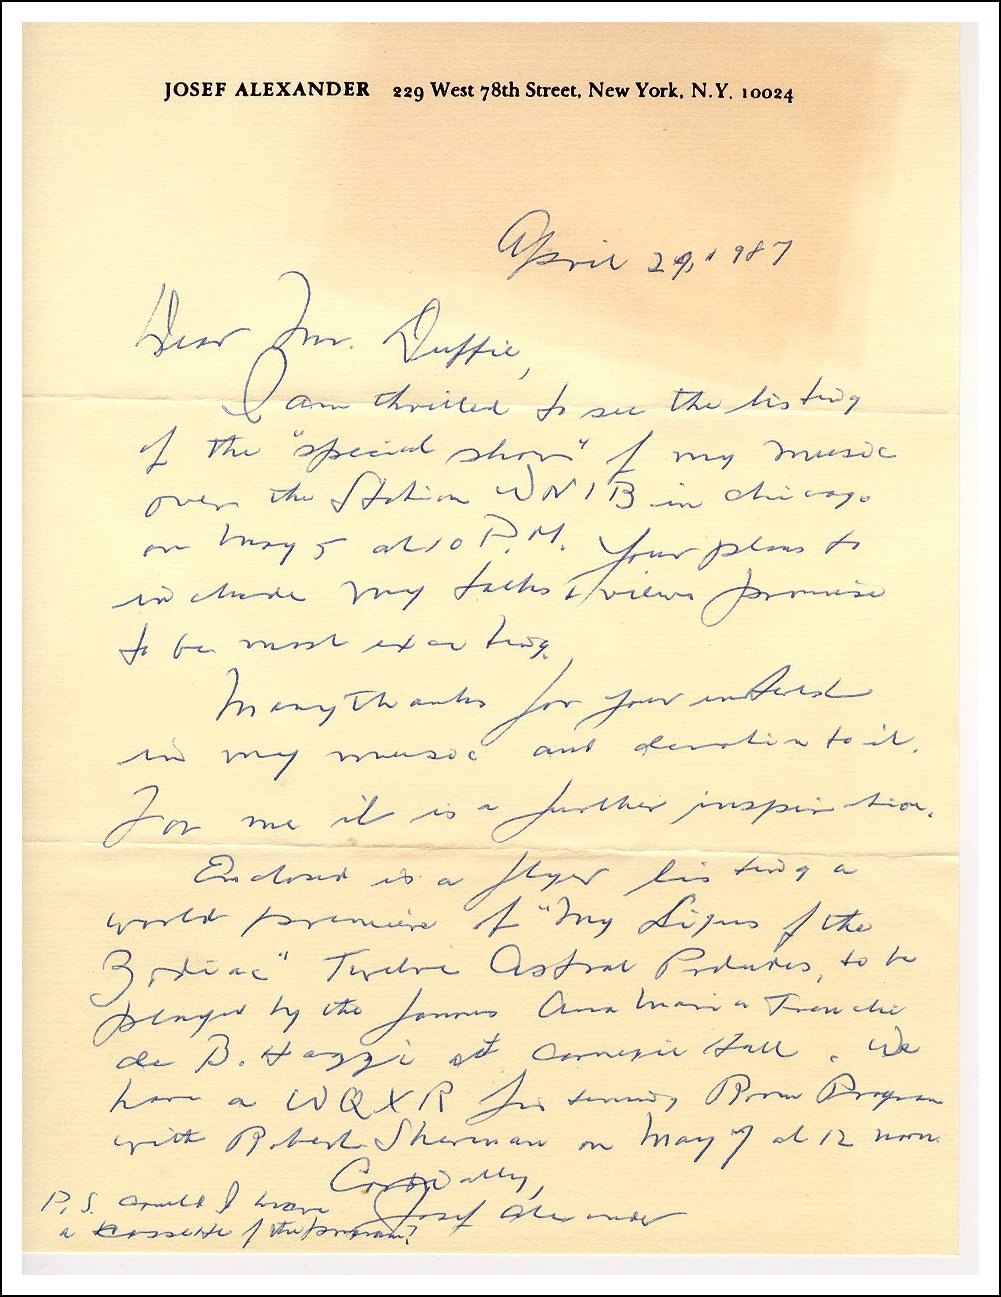 JOSEF ALEXANDER 229 West 78th Street, New York, N.Y. 10024
April 29, 1987
Dear Mr. Duffie,
I am thrilled to see the listing
of the "special show" of my music
over the Station WNIB in Chicago
on May 5 at 10 P.M. Your plans to
include my talks & views promise
to be most exciting.
Many Thanks for your interest
in my music and devotion to it.
For me it is a further inspiration.
Enclosed is a flyer listing a
world premiere of "My Signs of the
Zodiac" Twelve Astral Preludes, to be
played by the famous Ana Maria Trenchi
de B. Hazzi at Carnegie Hall. We
have a WQXR Listening Room Program
with Robert Sherman on May 7 at 12 noon.
Cordially,
Josef Alexander
P.S. Could I have
a cassette of the program?